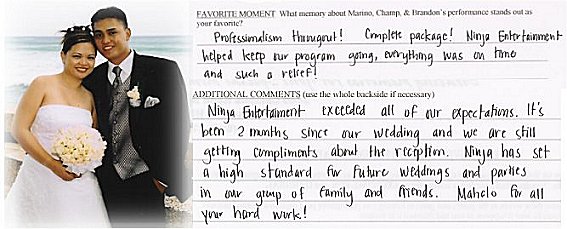 FAVORITE MOMENT What memory about Marino, Champ, & Brandon's performance stands out as
your favorite?
Professionalism througout! Complete package! Ninja Entertainment
helped keep our program going, everything was on time
and such a relief!
ADDITIONAL COMMENTS (use the whole backside if necessary)
Ninja Entertainment exceeded all of our expectations. It's
been 2 months since our wedding and we are still
getting compliments about the reception. Ninja has set
a high standard for future weddings and parties
in our group of family and friends. Mahalo for all
your hard work!